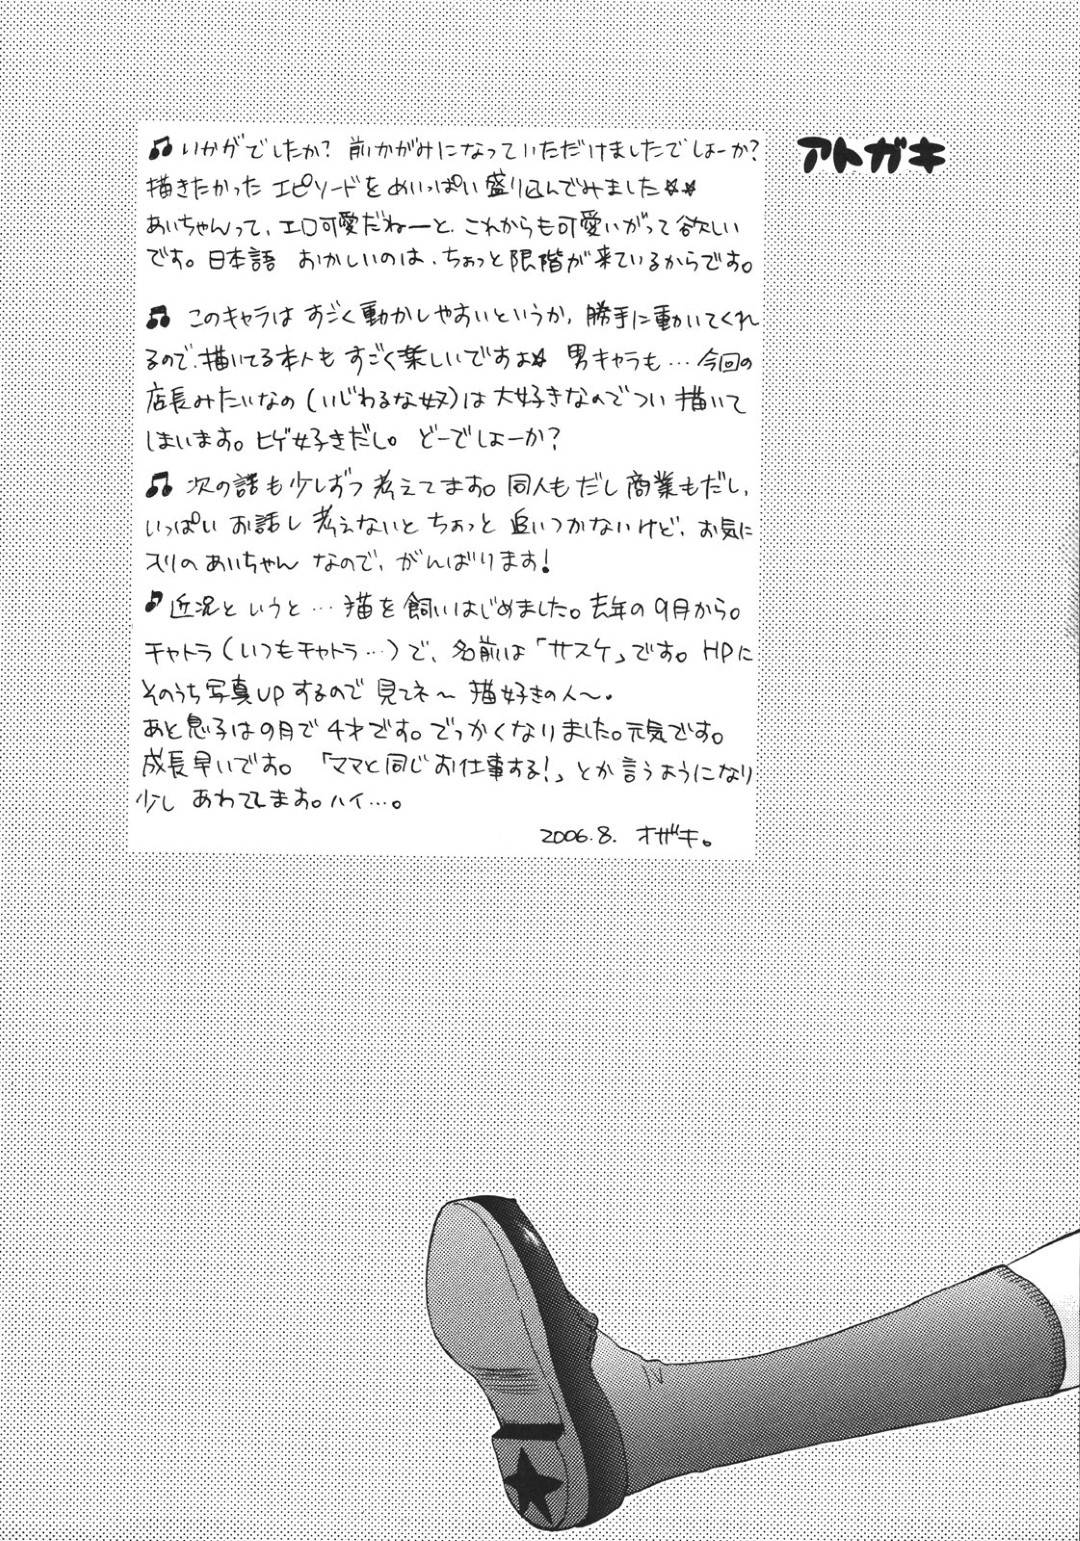 アトガキ
♫いかがでしたか? 前かがみになっていただけましたでしょーか?
描きたかった エピソードをめいっぱい盛り込んでみました☆☆
あいちゃんって、エロ可愛だねーと、これからも可愛いがって欲しい
です。日本語 おかしいのは、ちょっと限階が来ているからです。
♫ このキャラは すごく動かしやすいというか、勝手に動いてくれ
るので、描いてる本人も すごく楽しいですよ☆ 男キャラも…今回の
店長みたいなの(いじわるな奴)は 大好きなのでつい 描いて
しまいます。ヒゲ好きだし。 どーでしょーか?
♫ 次の話も少しずつ 考えてます。同人もだし 商業もだし、
いっぱい お話し 考えないと ちょっと 追いつかないけど、お気に
入りの あいちゃん なので、がんばります!
♪近況と いうと…猫を飼いはじめました。去年の9月から。
チャトラ(いつもチャトラ…)で、名前は「サスケ」です。HPに
そのうち写真UPするので 見てネ〜 猫好きの人〜。
あと息子は9月で 4才です。でっかくなりました。元気です。
成長早いです。「ママと同じお仕事する!」とか言うようになり
少し あわてしてます。ハイ…。
2006.8. オザキ。